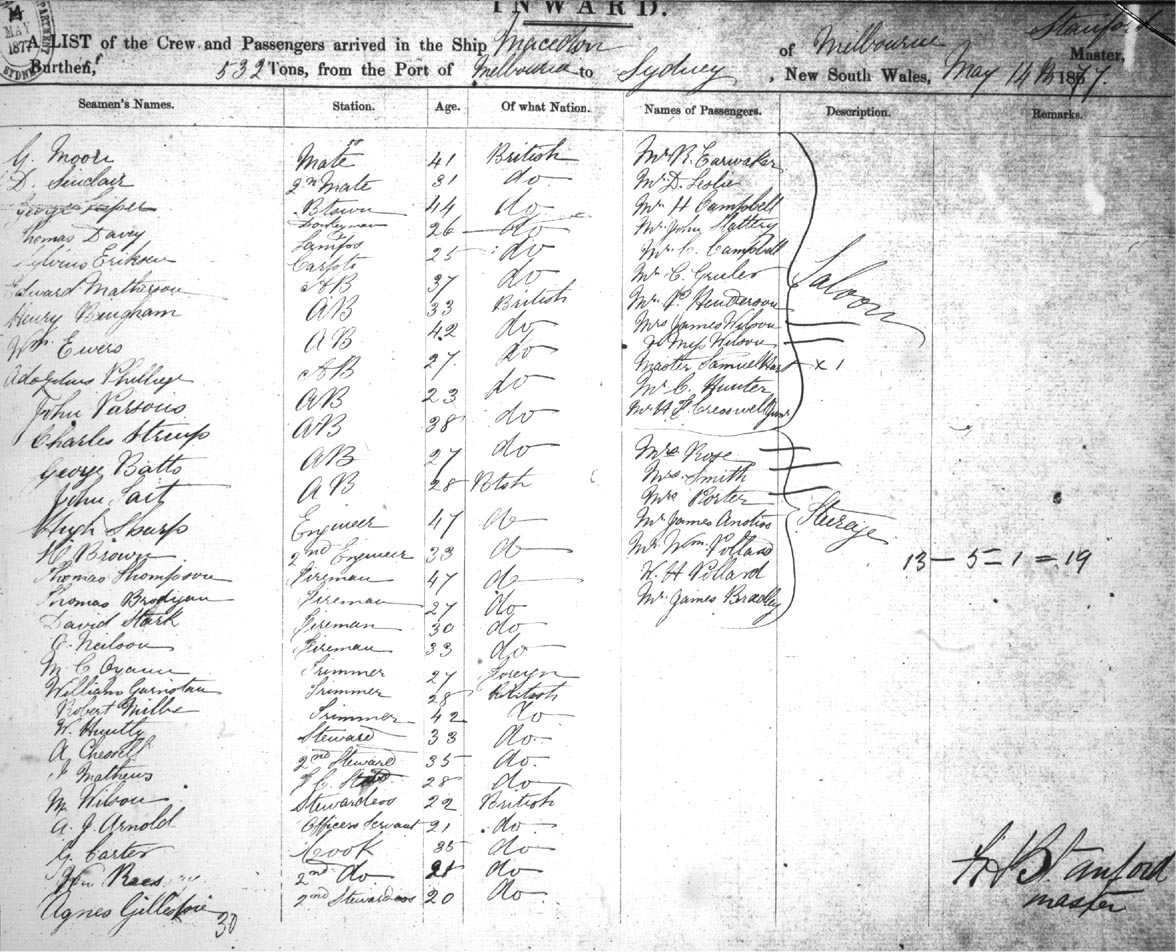 INWARD.
MAY
1877
SYDNEY
A LIST of the Crew and Passengers arrived in the Ship Macedon of Melbourne Stanford Master,
Burthen, 532 Tons, from the Port of Melbourne to Sydney, New South Wales, May 14th 1877.
Seamen's Names. Station. Age. Of what Nation. Names of Passengers. Description. Remarks.
G. Moore Mate 41 British Mr R. Earwaker
D. Sinclair 2nd Mate 31 do Mr D. Leslie
George 44 do Mr H Campbell
Thomas Davey 26 do Mr John Slattery
Erikson Lamps 25 do Mr C. Campbell
Carptr 37 do Mr C. Gruler
Edward Matherson AB 33 British Mr P. Henderson
Henry Bingham AB 42 do Mrs James Wilson
Wm Ewers AB 27 do Miss Wilson
Adolphus Phillips AB 23 do Master Samuel Hart x 1
John Parsons AB 38 do Mr C. Hunter
Charles Strup AB 27 do Mr H. J. Cresswell Junr
Saloon
George Batts AB 28 Btsh Mrs Rose
John Tait AB Mrs Smith
Hugh Sharp Engineer 47 do Mrs Porter
H Brown 2nd Engineer 33 do Mr James Anstios
Thomas Thompson Fireman 47 do Mr Wm. Pollard
Thomas Fireman 27 do W. H Pollard
David Stark Fireman 30 do Mr James Bradley
Steerage
13 - 5 - 1 = 19
G. Neilson Fireman 33 do
M. C. Trimmer 27 Foreyn
William Trimmer 28 British
Robert Milbe Trimmer 42 do
W. Huntly Steward 33 do
A Chessell 2nd Steward 35 do
J Mathews 28 do
M Wilson Stewardess 22 British
A. J. Arnold Officers Servant 21 do
G. Carter Cook 35 do
Wm. Raes 2nd do 21 do
Agnes Gillespie 2nd Stewardess 20 do
30
Stanford
master